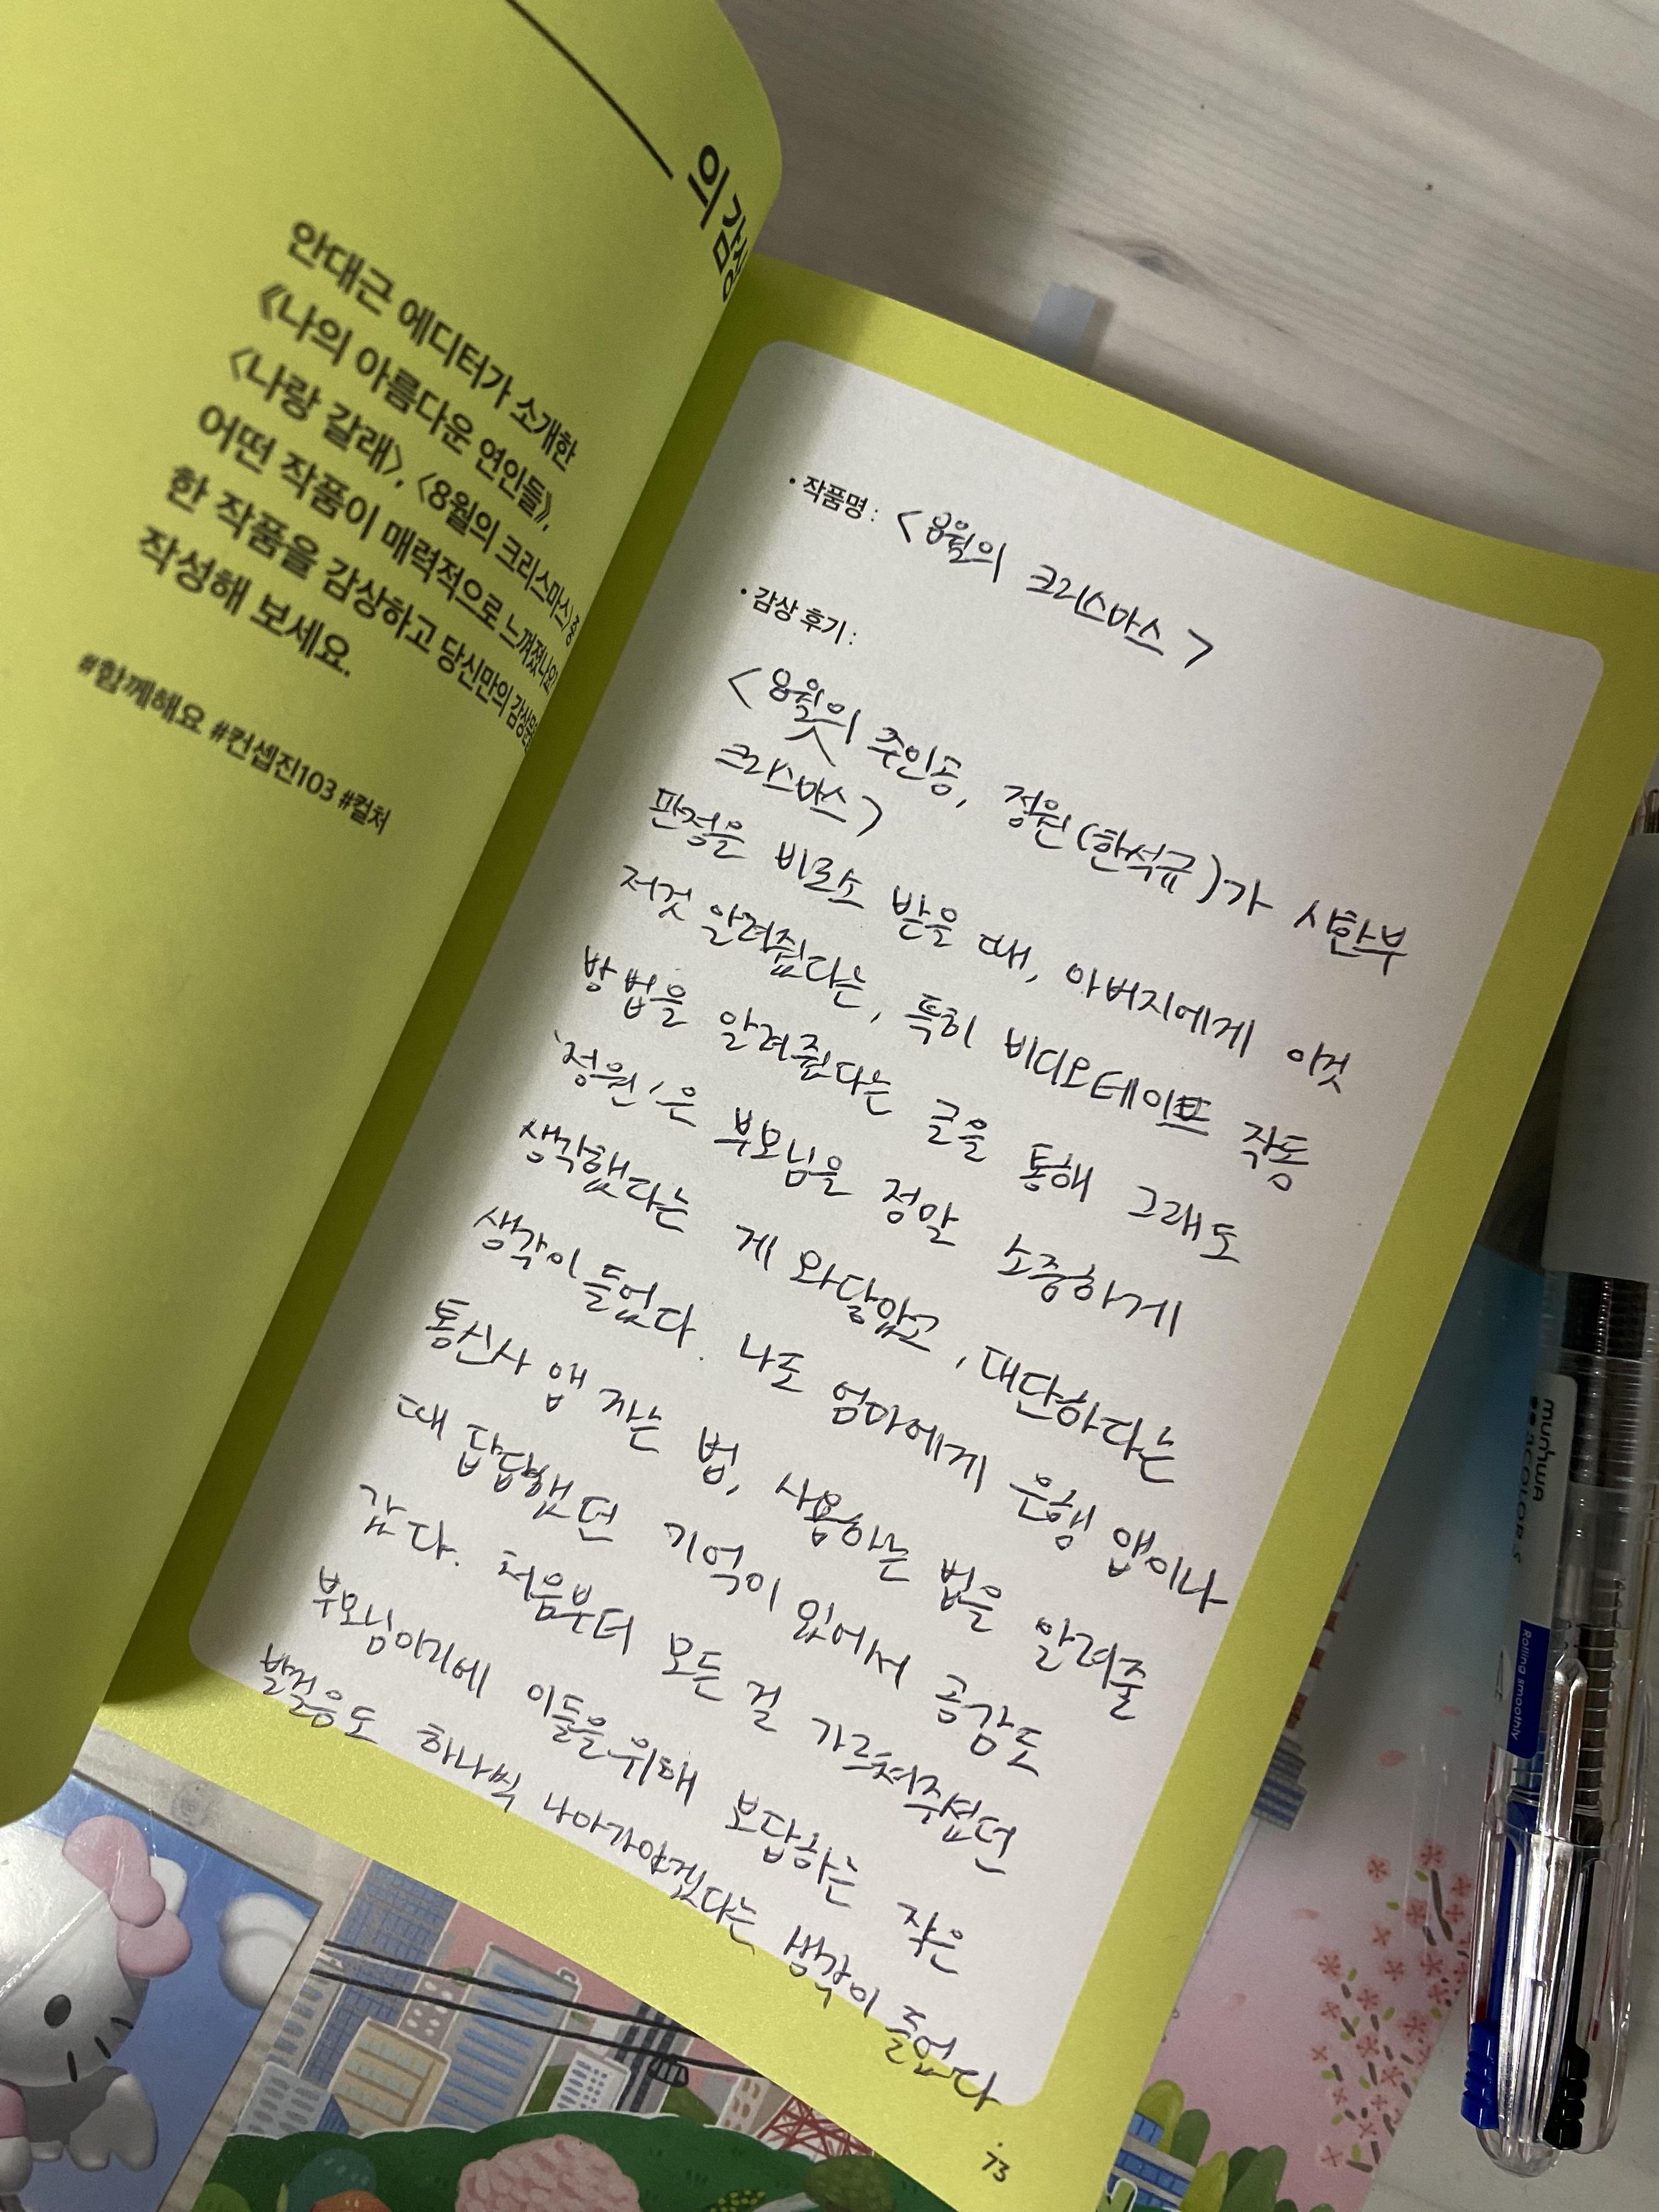 의 감상
안대근 에디터가 소개한
《나의 아름다운 연인들》,
〈나랑 갈래〉, 〈8월의 크리스마스〉 중
어떤 작품이 매력적으로 느껴졌나요?
한 작품을 감상하고 당신만의
작성해 보세요.
#함께해요 #컨셉진103 #컬처
• 작품명 : <8월의 크리스마스>
• 감상 후기 :
<8월의 주인공, 정원(한석규)가 시한부
크리스마스>
판정을 비로소 받을 때, 아버지에게 이것
저것 알려줬다는, 특히 비디오테이프 작동
방법을 알려줬다는 글을 통해 그래도
'정원'은 부모님을 정말 소중하게
생각했다는 게 와닿았고, 대단하다는
생각이 들었다. 나도 엄마에게 은행 앱이나
통신사 앱 까는 법, 사용하는 법을 알려줄
때 답답했던 기억이 있어서 공감도
갔다. 처음부터 모든 걸 가르쳐주셨던
부모님이기에 이들을 위해 보답하는 작은
발걸음도 하나씩 나아가야겠다는 생각이 들었다
73
munhwa
Rolling smoothly